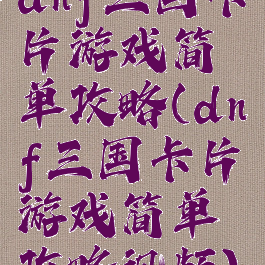 dnf三国卡
片游戏简
单攻略(dn
f三国卡片
游戏简单
攻略视频)